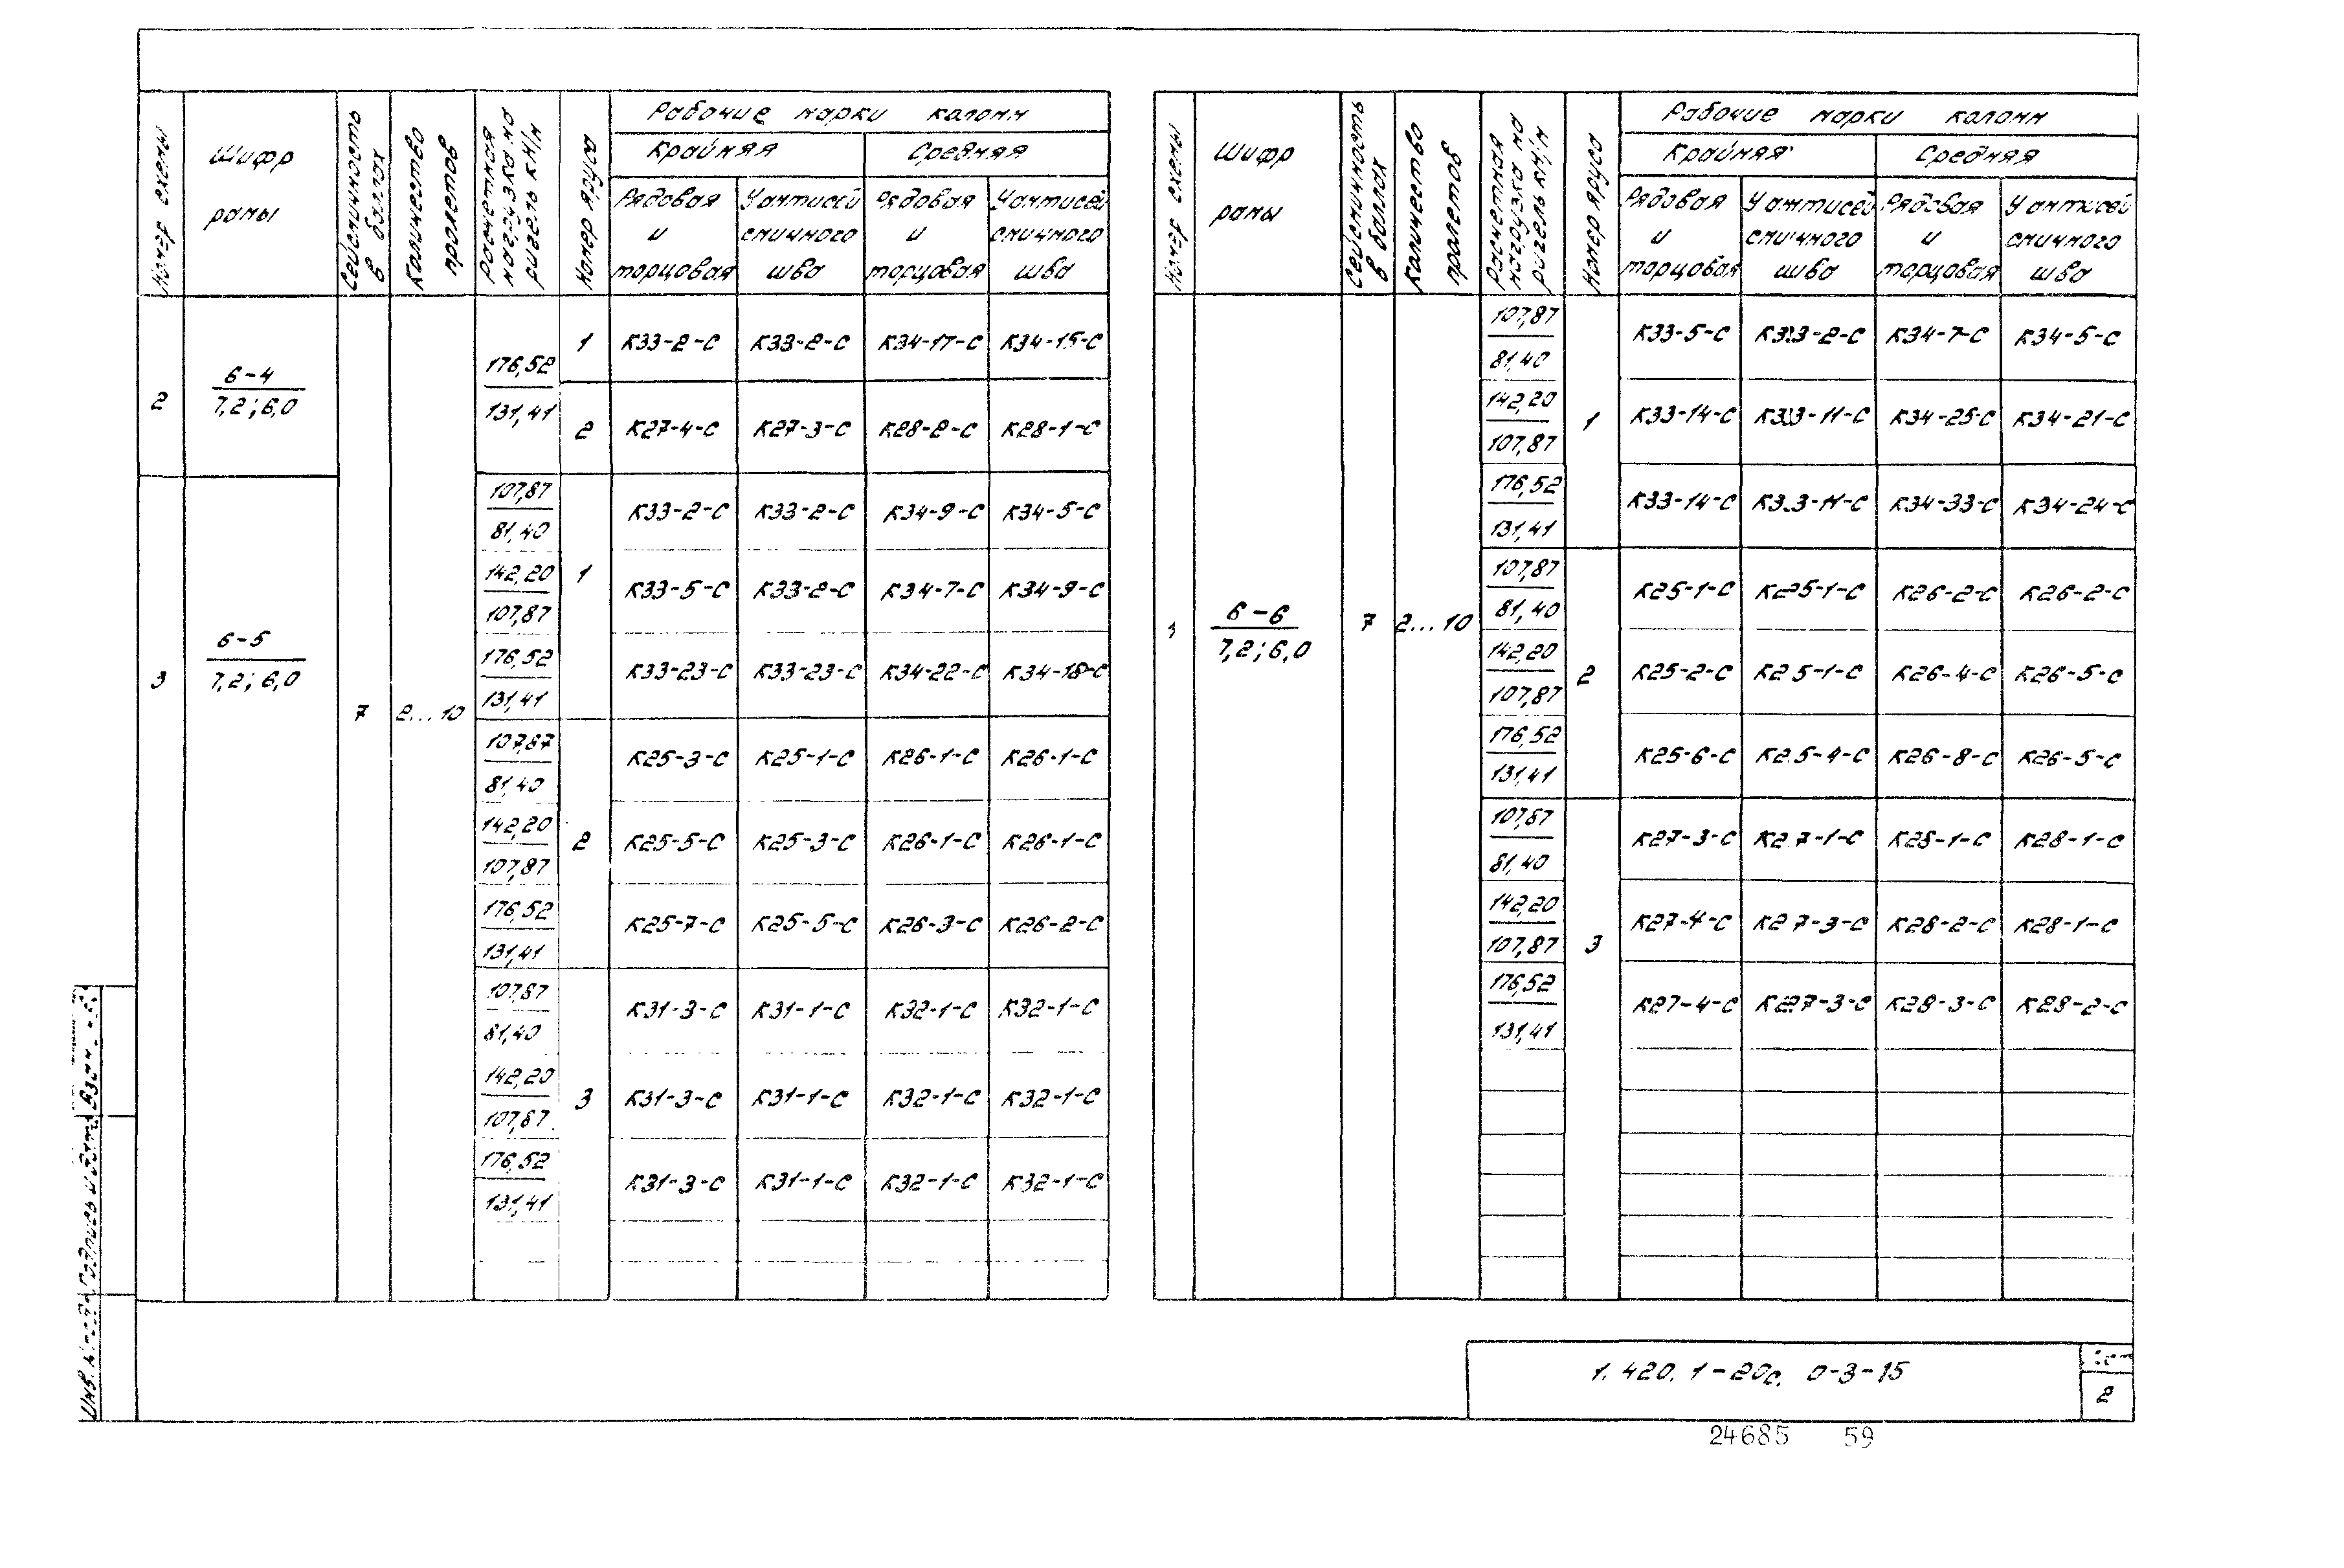 Номер схемы
Шифр
рамы
Сейсмичность
в баллах
Количество
пролетов
Расчетная
нагрузка на
ригель кН/м
Номер яруса
Рабочие марки колонн
Крайняя Средняя
Рядовая
и
торцовая
У антисей
смичного
шва
Рядовая
и
торцовая
У антисей
смичного
шва
2
6-4
7,2; 6,0
176,52
131,41
1 К33-2-С К33-2-С К34-17-С К34-15-С
2 К27-4-С К27-3-С К28-2-С К28-1-С
3
6-5
7,2; 6,0
7 2...10
107,87
81,40
К33-2-С К33-2-С К34-9-С К34-5-С
1
142,20
107,87
К33-5-С К33-2-С К34-7-С К34-9-С
176,52
131,41
К33-23-С К33-23-С К34-22-С К34-18-С
107,87
81,40
К25-3-С К25-1-С К26-1-С К26-1-С
2
142,20
107,87
К25-5-С К25-3-С К26-1-С К26-1-С
176,52
131,41
К25-7-С К25-5-С К26-3-С К26-2-С
107,87
81,40
К31-3-С К31-1-С К32-1-С К32-1-С
142,20
107,87
3
К31-3-С К31-1-С К32-1-С К32-1-С
176,52
131,41
К31-3-С К31-1-С К32-1-С К32-1-С
Номер схемы
Шифр
рамы
Сейсмичность
в баллах
Количество
пролетов
Расчетная
нагрузка на
ригель кН/м
Номер яруса
Рабочие марки колонн
Крайняя Средняя
Рядовая
и
торцовая
У антисей
смичного
шва
Рядовая
и
торцовая
У антисей
смичного
шва
6-6
7,2; 6,0
7 2...10
107,87
81,40
К33-5-С К33-2-С К34-7-С К34-5-С
142,20
107,87
1
К33-14-С К33-11-С К34-25-С К34-21-С
176,52
131,41
К33-14-С К33-11-С К34-33-С К34-24-С
107,87
81,40
К25-1-С К25-1-С К26-2-С К26-2-С
142,20
107,87
2
К25-2-С К25-1-С К26-4-С К26-5-С
176,52
131,41
К25-6-С К25-4-С К26-8-С К26-5-С
107,87
81,40
К27-3-С К27-1-С К28-1-С К28-1-С
142,20
107,87
3
К27-4-С К27-3-С К28-2-С К28-1-С
176,52
131,41
К27-4-С К27-3-С К28-3-С К28-2-С
1.420.1-20с. 0-3-15
2
24685 59